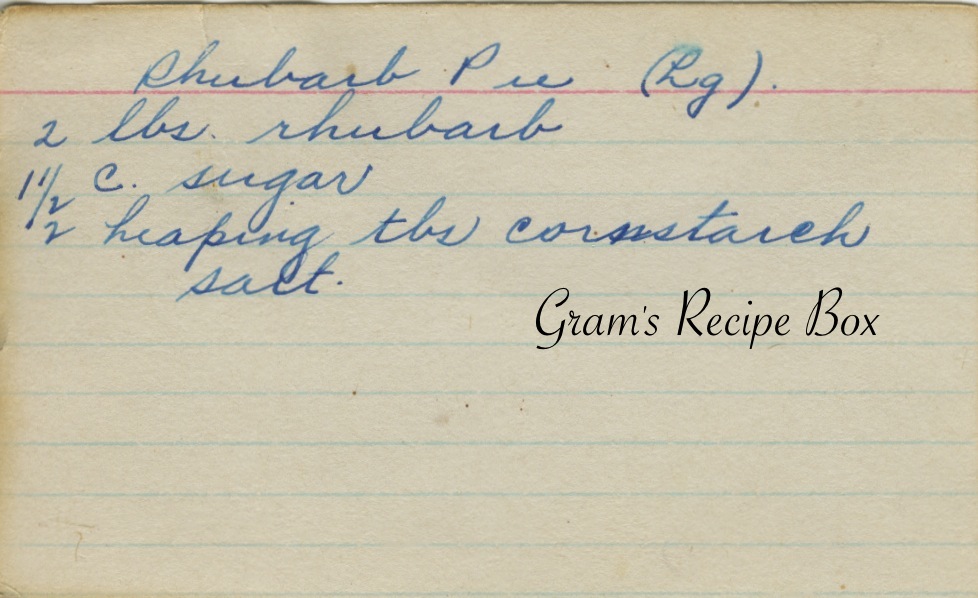 Rhubarb Pie (Lg).
2 lbs. rhubarb
1 1/2 c. sugar
2 heaping tbs cornstarch
salt.
Gram's Recipe Box